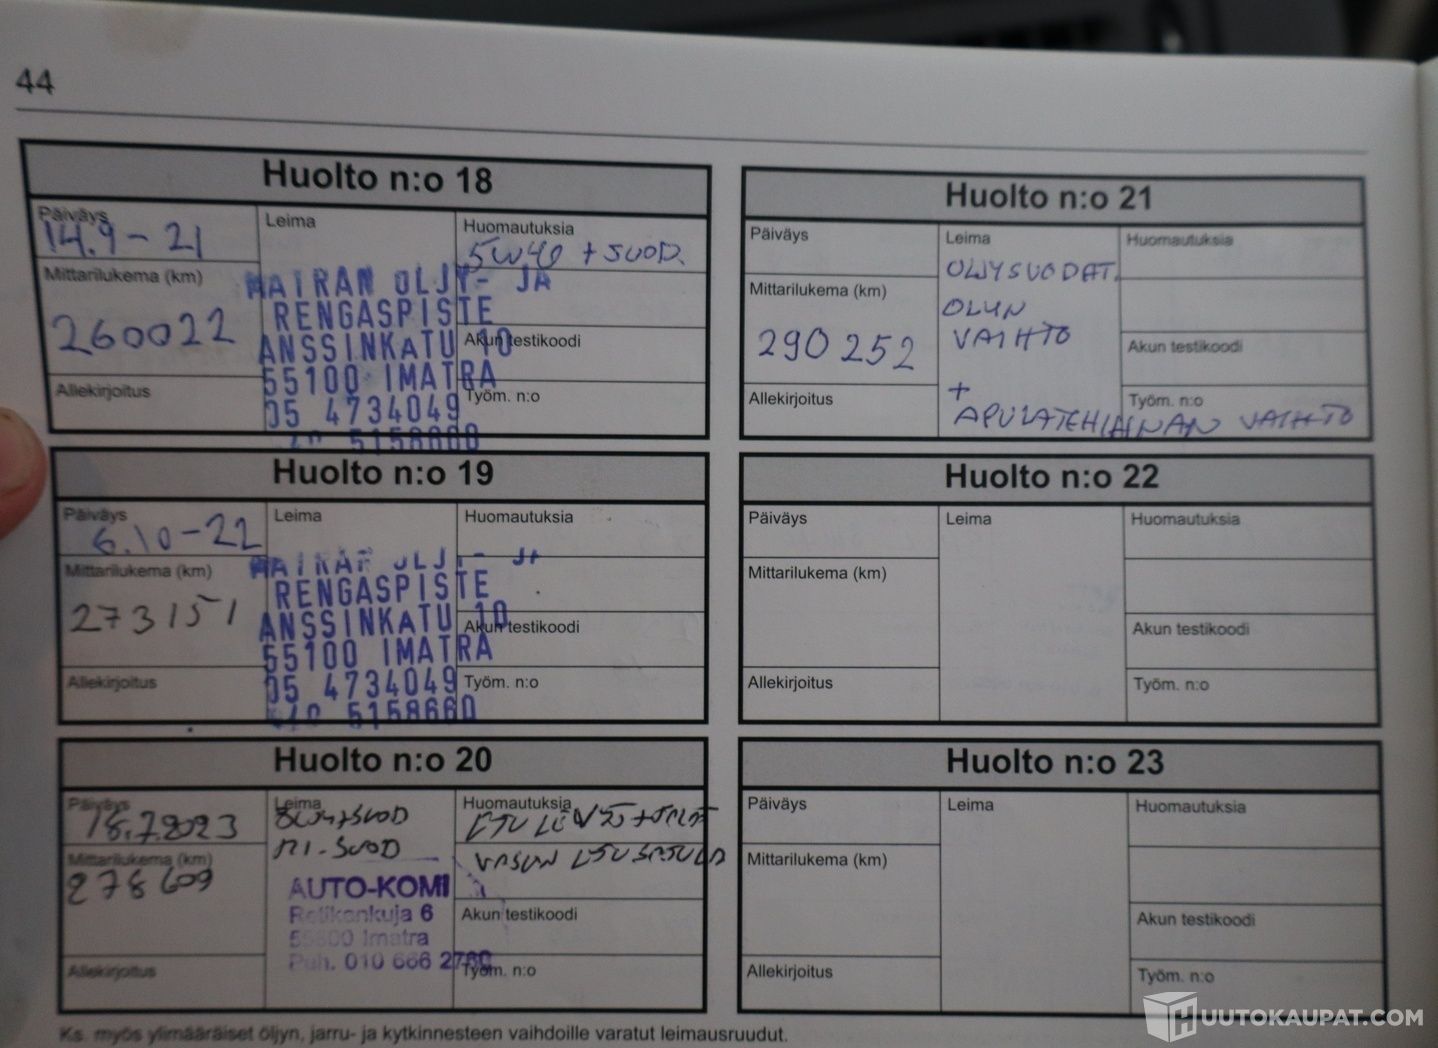 44
Huolto n:o 18
Päiväys
14.9-21
Leima
Huomautuksia
5W40 + SUOD.
Mittarilukema (km)
260022
MAIRAN ÖLJY- JA
RENGASPISTE
ANSSINKATU 10
55100 IMATRA
05 4734049
Akun testikoodi
Allekirjoitus
Työm. n:o
Huolto n:o 19
Päiväys
6.10-22
Leima
Huomautuksia
Mittarilukema (km)
273151
RENGASPISTE
ANSSINKATU 10
55100 IMATRA
05 4734049
5158660
Akun testikoodi
Allekirjoitus
Työm. n:o
Huolto n:o 20
Päiväys
18.7.2023
Leima
Huomautuksia
Mittarilukema (km)
278609
AUTO-KOMI
Retikankuja 6
55800 Imatra
Puh. 010 666 2760
Akun testikoodi
Allekirjoitus
Työm. n:o
Huolto n:o 21
Päiväys
Leima
Huomautuksia
ÖLJYSUODAT.
ÖLJYN
VAIHTO
+
APULAITEHIHNAN VAIHTO
Mittarilukema (km)
290 252
Akun testikoodi
Allekirjoitus
Työm. n:o
Huolto n:o 22
Päiväys
Leima
Huomautuksia
Mittarilukema (km)
Akun testikoodi
Allekirjoitus
Työm. n:o
Huolto n:o 23
Päiväys
Leima
Huomautuksia
Mittarilukema (km)
Akun testikoodi
Allekirjoitus
Työm. n:o
Ks. myös ylimääräiset öljyn, jarru- ja kytkinnesteen vaihdoille varatut leimausruudut.
HUUTOKAUPAT.COM